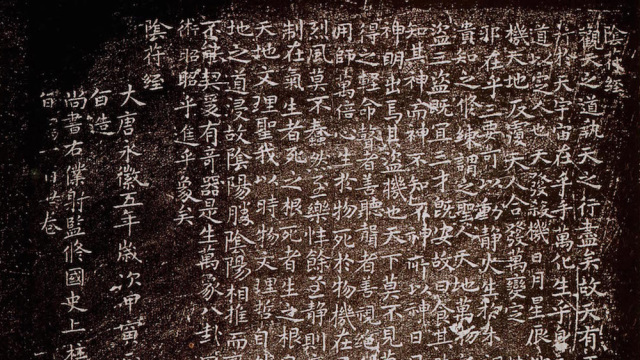 陰符經
觀天之道執天之行盡矣故天有
行於天宇宙在乎手萬化生乎身
道以定人也天發殺機日月星辰
機天地反覆天人合發萬變定
邪在乎三要可以動靜火生於木
貴知之修練謂之聖人天地萬物
盜三盜既宜三才既安故曰食其
知其神而神不知不神而所以神日
神明出焉其盜機也天下莫不見
得之輕命瞽者善聽聾者善視絕
用師萬倍心生於物死於物機在
烈風莫不蠢然至樂性餘至靜則
制在氣生者死之根死者生之根
天地文理聖我以時物文理哲自
地之道浸故陰陽勝陰陽相推而
不能契爰有奇器是生萬象八卦
術昭昭乎進乎象矣
陰符經
大唐永徽五年歲次甲寅
旨造
尚書右僕射監修國史上柱